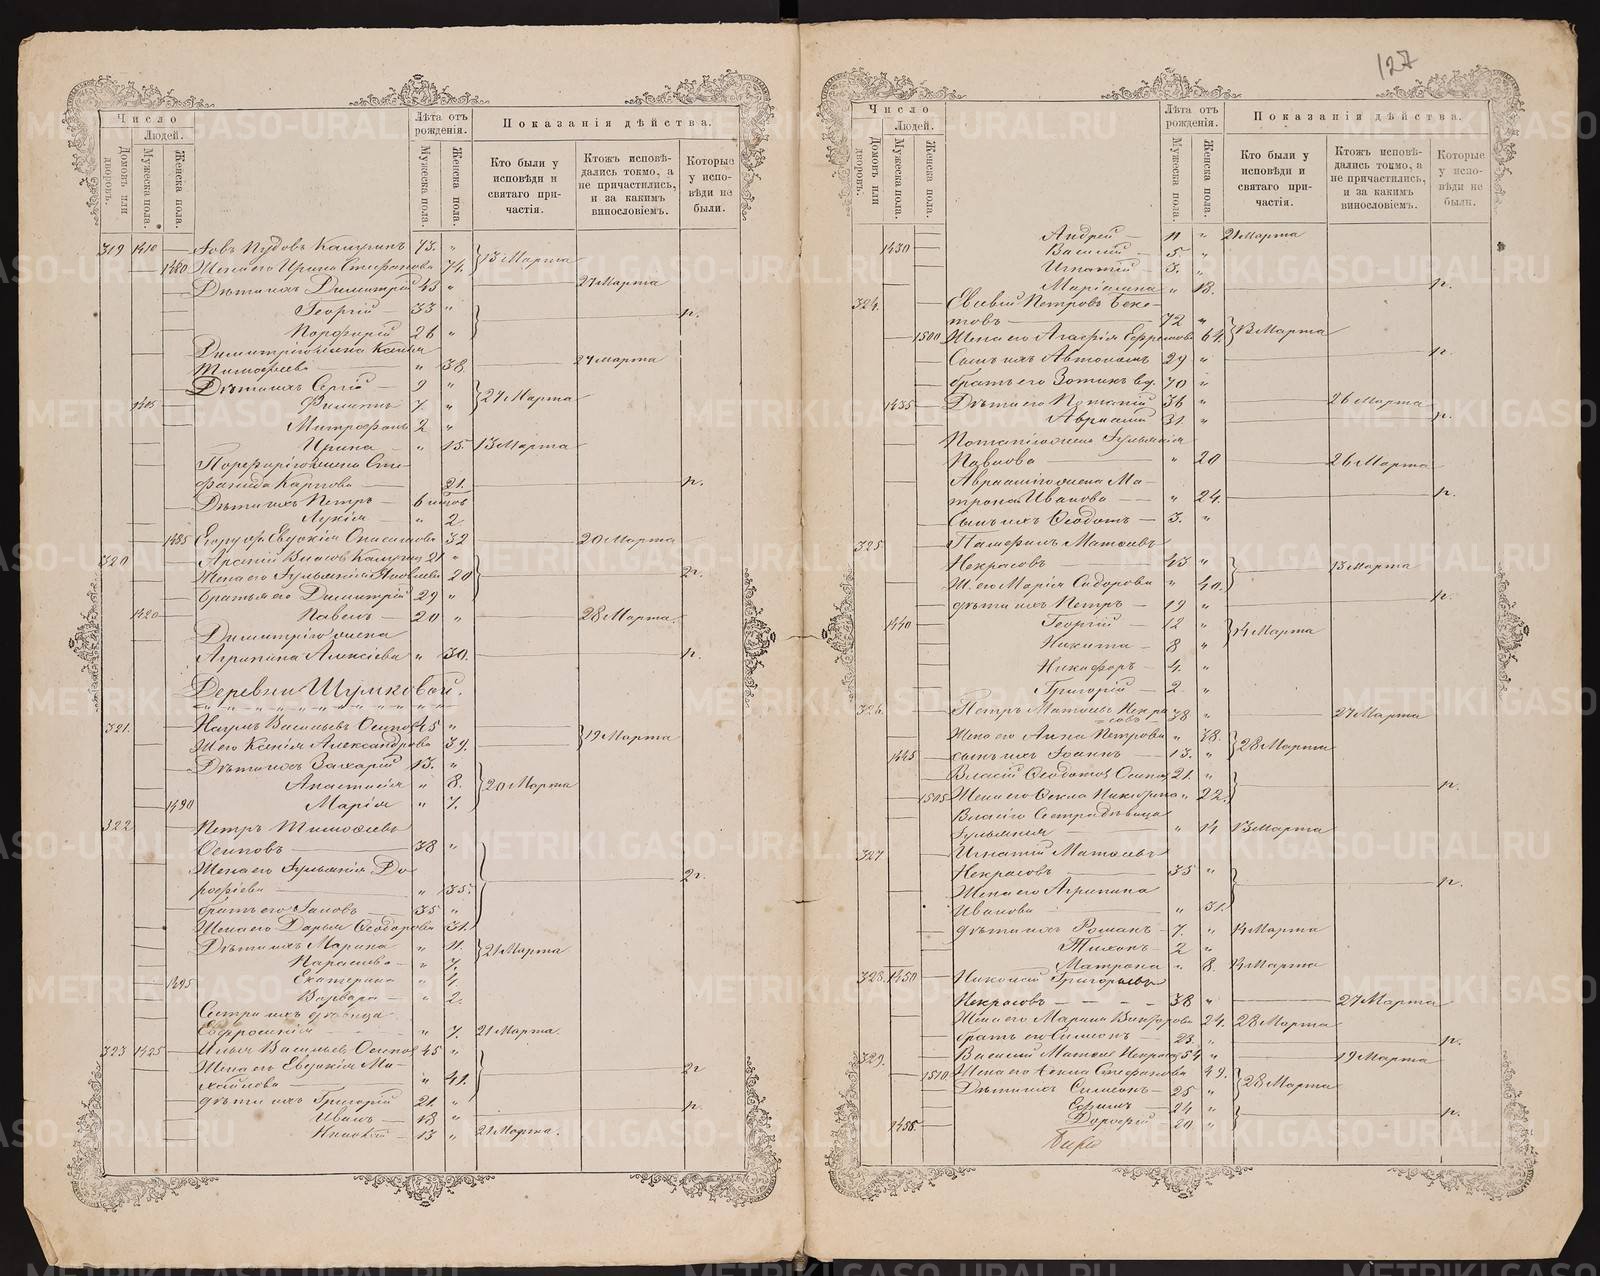 127
Число
Людей.
Домовъ или дворовъ.
Мужеска пола.
Женска пола.
Лѣта отъ рожденія.
Мужеска пола.
Женска пола.
Показанія дѣйства.
Кто были у исповѣди и святаго причастія.
Ктожъ исповѣдались токмо, а не причастились, и за какимъ винословіемъ.
Которые у исповѣди не были.
319 1410 Іовъ Пудовъ 73. "
1480 Жена его Ирина Стефанова 74. 13 Марта
Дѣти ихъ Димитрій 43 " 27 Марта
Георгій 33 "
Порфирій 26 "
Димитрія жена
Тимофеева " 38. 27 Марта
Дѣти ихъ Сергій 9 "
1415 7. " 27 Марта
Митрофанъ 2 "
Ирина " 15. 13 Марта
Порфирія жена Сте-
фанида Карпова 21.
Дѣти ихъ Петръ 6
Лукія " 2.
1485 Евдокія 32 20 Марта
320 Арсеній Власовъ 21 "
Жена его Іуліанія Яковлева 20
Братья его Димитрій 29 "
1420 Павелъ 20 " 28 Марта.
Димитрія жена
Агрипина Алексіева " 30.
Деревни Шумковой.
321. Наумъ Васильевъ Осиповъ 45 "
Ж его Ксенія Александрова 39. 19 Марта
Дѣти ихъ Захарій 13. "
Анастасія " 8. 20 Марта
1490 Марія " 7.
322 Петръ Тимоѳеевъ
Осиповъ 38 "
Жена его Іуліанія До-
роѳіева " 35.
братъ его Іаковъ 35 "
Жена его Дарья Ѳеодорова 31.
Дѣти ихъ Марина " 11. 21 Марта
" 7.
1495 Екатерина " 4.
Варвара " 2.
Сестра ихъ дѣвица
" 7. 21 Марта.
323 1425 Илья Васильевъ Осиповъ 45 "
Жена его Евдокія Ми-
хайлова " 41.
дѣти ихъ Григорій 21 "
Иванъ 18 "
Николай 13 " 21 Марта.
Число
Людей.
Домовъ или дворовъ.
Мужеска пола.
Женска пола.
Лѣта отъ рожденія.
Мужеска пола.
Женска пола.
Показанія дѣйства.
Кто были у исповѣди и святаго причастія.
Ктожъ исповѣдались токмо, а не причастились, и за какимъ винословіемъ.
Которые у исповѣди не были.
Андрей 11 " 21 Марта
1430 Василій 5. "
Игнатій 3. "
Маріамна " 18.
324. Евсевій Петровъ Беке-
товъ 72 "
1500 Жена его Агафія Ефремова 64. 13 Марта
Сынъ ихъ Автономъ 29 "
братъ его Зотикъ вд. 70 "
1435 Дѣти его Потапій 36 " 26 Марта
Авраамій 31. "
Потапія жена Іуліанія
Павлова " 20 26 Марта
Авраамія жена Ма-
трона Иванова " 24.
Сынъ ихъ Ѳеодотъ 3. "
325. Памфилъ Матвѣевъ
Некрасовъ 43 " 13 Марта
Ж его Марія Сидорова " 40.
дѣти ихъ Петръ 19 "
1440 Георгій 12 " 14 Марта
Никита 8 "
Никифоръ 4. "
Григорій 2 "
326. Петръ Матвѣевъ Некра-
совъ 38 " 27 Марта
Жена его Анна Петрова " 38. 28 Марта
1445 сынъ ихъ Іоаннъ 13. "
Власій Ѳеодотовъ Осиповъ 21. "
1505 Жена его Ѳекла Никифорова " 22.
Власія Сестра дѣвица
Іуліанія " 14 13 Марта
327 Игнатій Матвѣевъ
Некрасовъ 35 "
Жена его Агрипина
Иванова " 31.
дѣти ихъ Романъ 7. " 14 Марта
Тихонъ 2 "
Матрона " 8. 14 Марта
328. 1450 Николай Григорьевъ
Некрасовъ 38 " 27 Марта
Жена его Марина Викторова 24. 28 Марта
братъ его Симеонъ 23. "
329. Василій Матвѣевъ Некрасовъ 54 " 19 Марта
1510 Жена его Ѳекла Стефанова 49. 28 Марта
Дѣти ихъ Симеонъ 25 "
Ефимъ 24 "
1455. Дороѳей 20 "